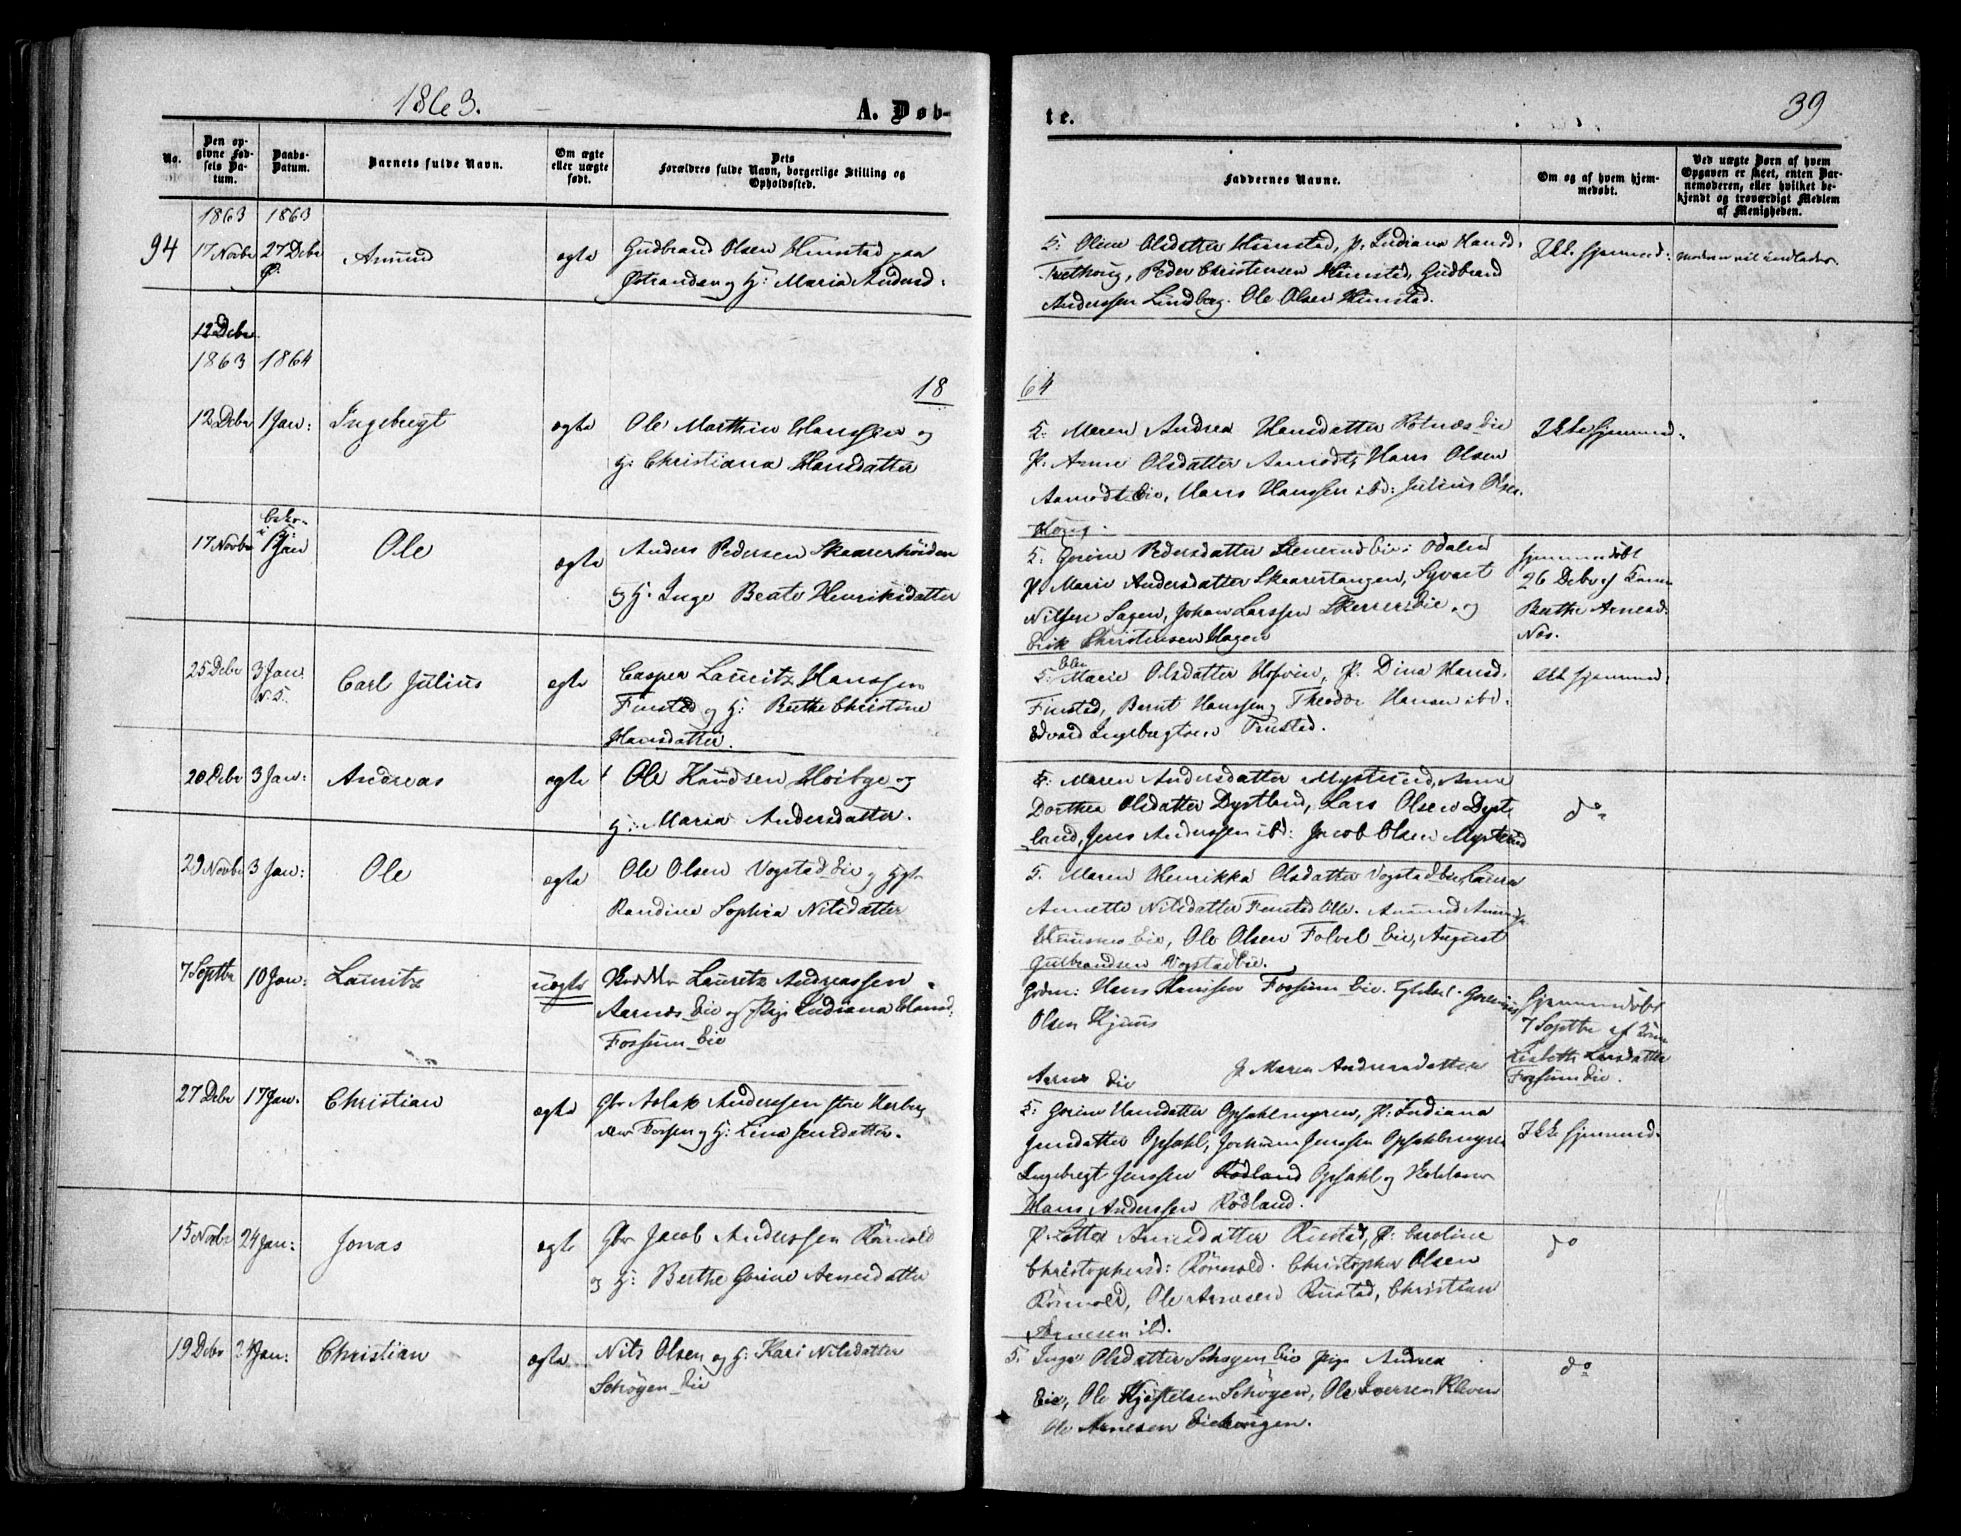 1863.
A. Døb-
te.
39
No.
Den op-
givne Fød-
sels Da-
tum.
Daabs-
Datum.
Barnets fulde Navn.
Om ægte
eller uægte
født.
Dets
Forældres fulde Navn, borgerlige Stilling og
Opholdssted.
Faddernes Navne.
Om og af hvem hjem-
medøbt.
Ved uægte Børn af hvem
Opgaven er skeet, enten Bar-
nemoderen, eller hvilket be-
kjendt og troværdigt Medlem
af Menigheden.
1863 1863
94 17 Novbr 27 Debr Amund ægte Gudbrand Olsen Hunstad paa
Østrandsen og H: Maria Andersd.
F: Oline Olsdatter Hunstad, P. Indiana Hansd.
Peder Christensen Hunstad, Gudbrand
Anderssen Lindberg. Ole Olsen Hunstad.
Ikke hjemmed:
12 Debr
1863 1864
18
64
12 Debr 1 Jan: Ingebrigt ægte Ole Marthin Hanssen og
H: Christiana Hansdatter
F. Maren Andrea Hansdatter Rotnæs Eie
P. Anne Olsdatter Aamodt, Hans Olsen
Aamodt Eie, Hans Hanssen ibd: Julius
Ikke hjemmed:
Haug.
17 Novbr 1 Jan Ole ægte Anders Pedersen Skaarerhöiden
og H. Inge Beate Henriksdatter
F. Gorine Pedersdatter Eie i Odalen
P. Marie Andersdatter Skaarertangen, Syvert
Nilssen Sagen, Johan Larssen Eie, og
Erik Christensen Hagen
hjemmedöbt
26 Debr af
Berthe Arnesd:
Næs.
25 Debr 3 Jan Carl Julius ægte Casper Lauritz Hanssen
Finstad og H: Berthe Christine
Hansdatter.
F. Marie Olsdatter Hofvin, P. Dina Hansd.
Finstad, Bernt Hanssen, Theodor Hansen ibd:
Edvard Ingebrigtsen Finstad.
ikke hjemmed:
20 Debr 3 Jan: Andreas ægte Ole Knudsen Höibye og
H: Maria Andersdatter.
F: Maren Andersdatter Mysterud, Anne
Dorthea Olsdatter Dystland, Lars Olsen Dyst-
land, Jens Anderssen ibd: Jacob Olsen Mysterud
do
29 Novbr 3 Jan: Ole ægte Ole Olsen Vogstad Eie og
Randine Sophia Nilsdatter
F. Maren Henrikka Olsdatter Vogstad Eie, Laura
Annette Nilsdatter Finstad Ole. Amund
Eie, Ole Olsen Folvel Eie, August
Gulbrandsen Vogstad Eie.
7 Septbr 10 Jan: Lauritz uægte Lauritz Andreassen
Aarnæs Eie og Pige Indiana Hansd.
Fossum Eie
Hans Hanssen Fossum Eie.
Olsen Kjuus
Aarnæs Eie P. Maren Andersdatter
hjemmedöbt
7 Septbr af
Lisbeth Larsdatter
Fossum Eie.
27 Debr 17 Jan. Christian ægte Gbr Aslak Anderssen
Fossen og H: Lina Jensdatter.
F: Gorine Hansdatter Opsahlmyren, P: Indiana
Jensdatter Opsahl, Jochum Jenssen Opsahlmyren
Ingebrigt Jenssen Rödland Opsahl og
Hans Anderssen Rödland.
Ikke hjemmed.
15 Novbr 24 Jan: Jonas ægte Gbr Jacob Anderssen Römold
og H: Berthe Gorine Arnesdatter
P. Lotte Arnesdatter Rustad, P: Caroline
Christophersd: Römold. Christopher Olsen
Römold, Ole Arnesen Rustad, Christian
Arnesen ibd.
do
19 Debr 24 Jan: Christian ægte Nils Olsen og H: Kari Nilsdatter
Schöyen Eie
F. Inge Olsdatter Schøyen Eie Pige Andrea
Eie, Ole Schöyen, Ole Iversen Kleven
Ole Arnesen
do